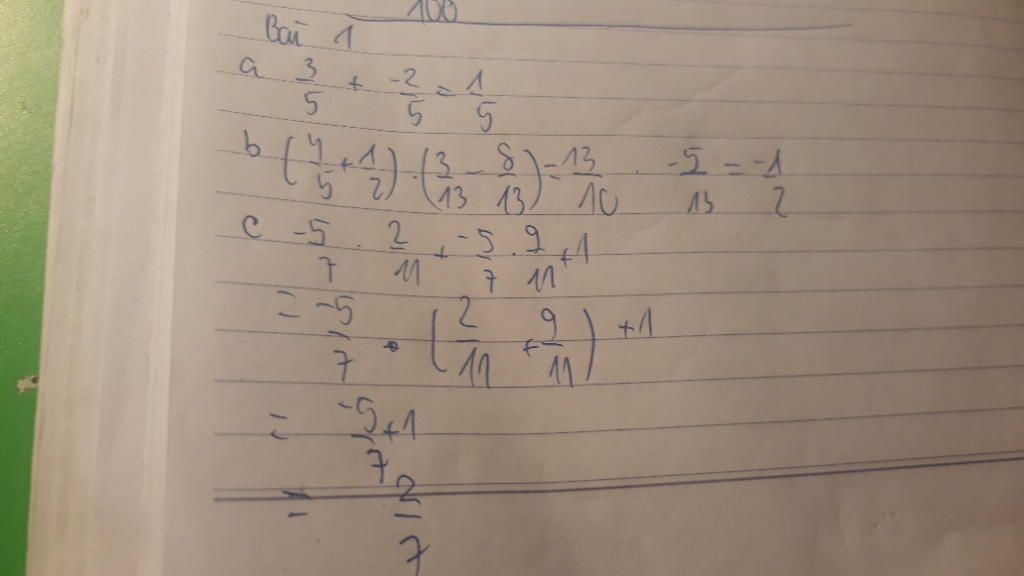 100
Bài 1
a 3/5 + -2/5 = 1/5
b (4/5 + 1/2) . (3/13 - 8/13) = 13/10 . -5/13 = -1/2
c -5/7 . 2/11 + -5/7 . 9/11 + 1
= -5/7 . (2/11 + 9/11) + 1
= -5/7 + 1
= 2/7